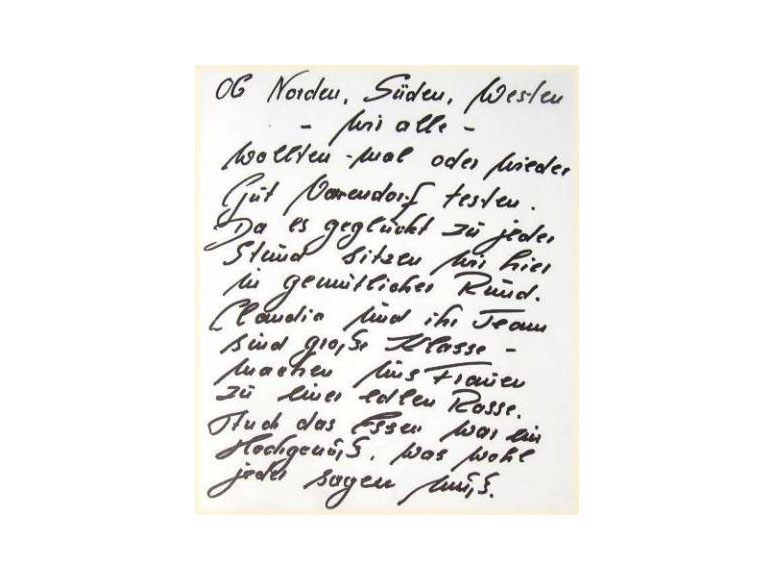 OG Norden, Süden, Westen
- wir alle -
wollten mal oder wieder
Gut Varendorf testen.
Da es geglückt zu jeder
Stund sitzen wir hier
in gemütlicher Rund.
Claudia und ihr Team
sind große Klasse -
machen uns Frauen
zu einer edlen Rasse.
Auch das Essen war ein
Hochgenuß, was wohl
jeder sagen muß.